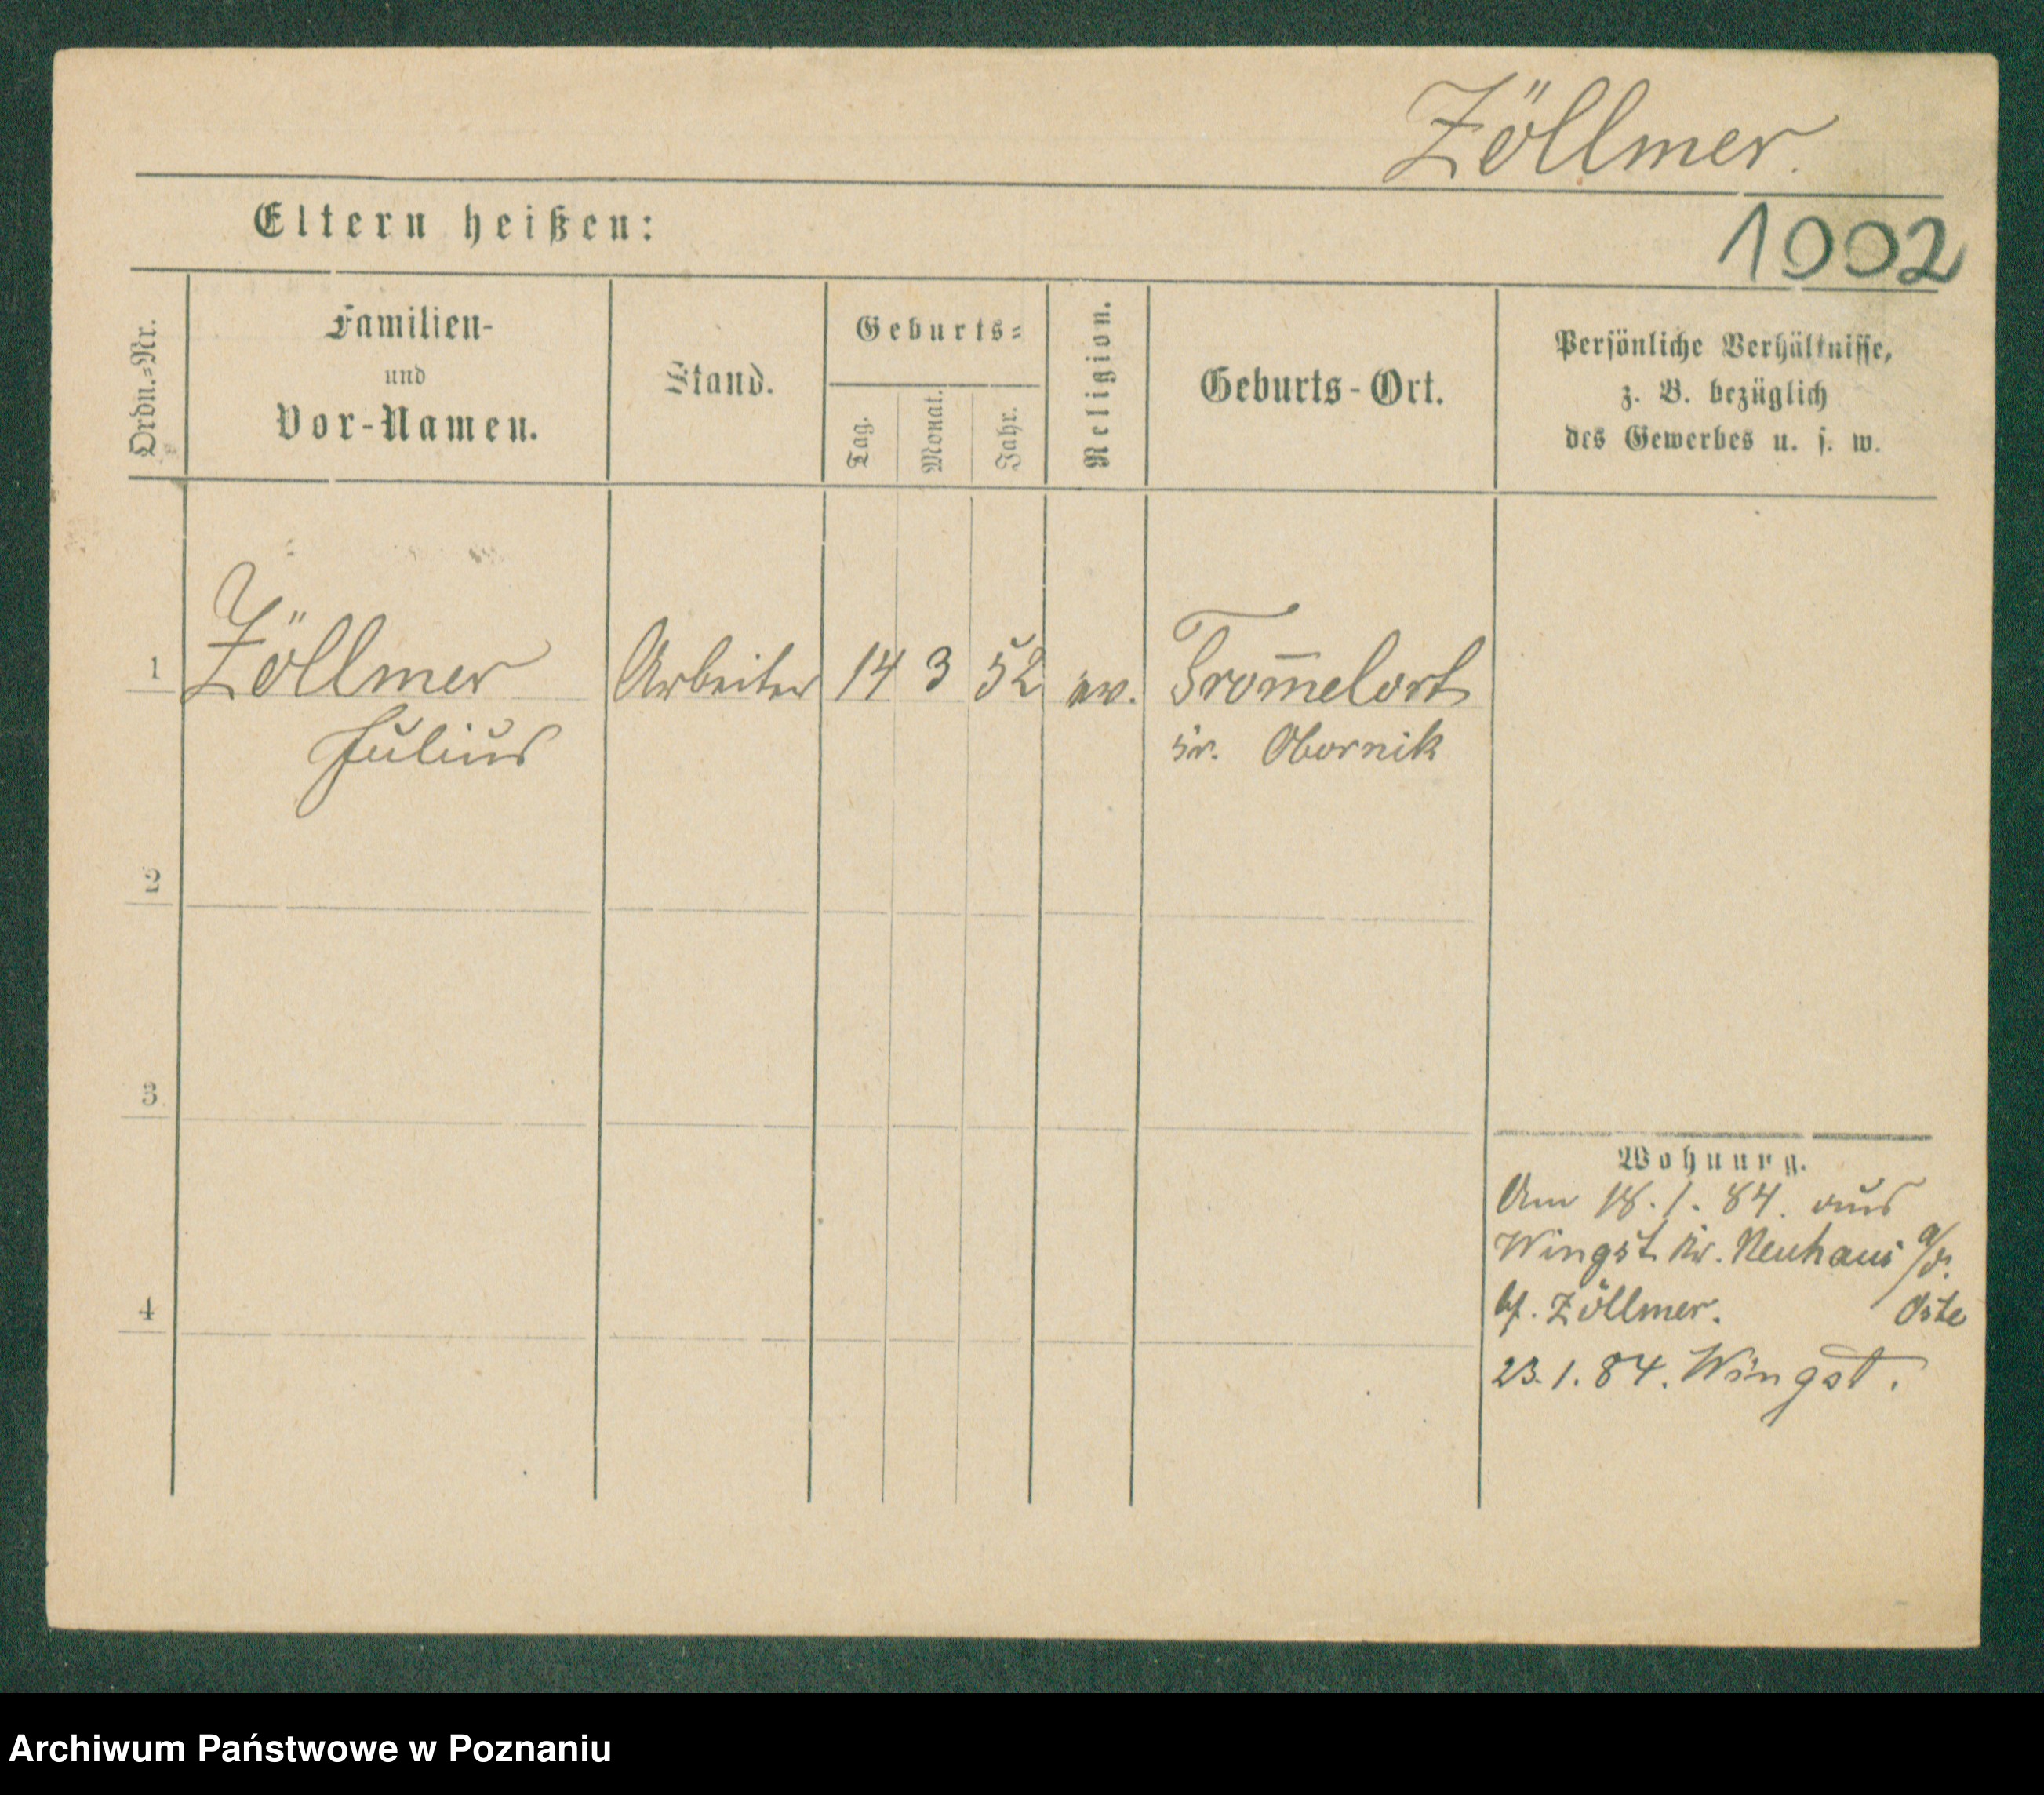 Zöllmer.
Eltern heißen:
1002
Ordn.=Nr.
Familien-
und
Vor-Namen.
Stand.
Geburts=
Tag.
Monat.
Jahr.
Religion.
Geburts-Ort.
Persönliche Verhältnisse,
z. B. bezüglich
des Gewerbes u. s. w.
1 Zöllmer Arbeiter 14 3 52 ev. Trom̄elort
Julius Kr. Obornik
2
3
4
Wohnung.
Am 18. 1. 84. aus
Wingst Kr. Neuhaus a/d.
Zöllmer. Oste
23. 1. 84. Wingst.
Archiwum Państwowe w Poznaniu